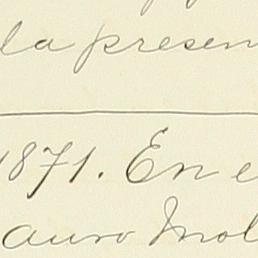 la presen
1871. En e
auro Mol